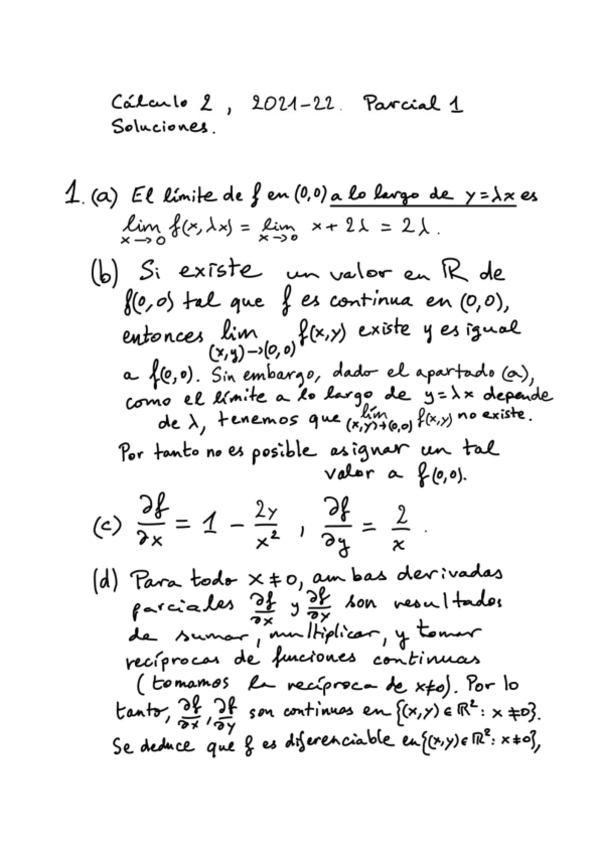 Cálculo 2, 2021-22. Parcial 1
Soluciones.
1. (a) El límite de f en (0,0) a lo largo de y=λx es
lim_{x→0} f(x,λx) = lim_{x→0} x+2λ = 2λ.
(b) Si existe un valor en ℝ de
f(0,0) tal que f es continua en (0,0),
entonces lim_{(x,y)→(0,0)} f(x,y) existe y es igual
a f(0,0). Sin embargo, dado el apartado (a),
como el límite a lo largo de y=λx depende
de λ, tenemos que lim_{(x,y)→(0,0)} f(x,y) no existe.
Por tanto no es posible asignar un tal
valor a f(0,0).
(c) ∂f/∂x = 1 - 2y/x², ∂f/∂y = 2/x.
(d) Para todo x≠0, ambas derivadas
parciales ∂f/∂x y ∂f/∂y son resultados
de sumar, multiplicar, y tomar
recíprocas de funciones continuas
(tomamos la recíproca de x≠0). Por lo
tanto, ∂f/∂x, ∂f/∂y son continuas en {(x,y)∈ℝ²: x≠0}.
Se deduce que f es diferenciable en {(x,y)∈ℝ²: x≠0},